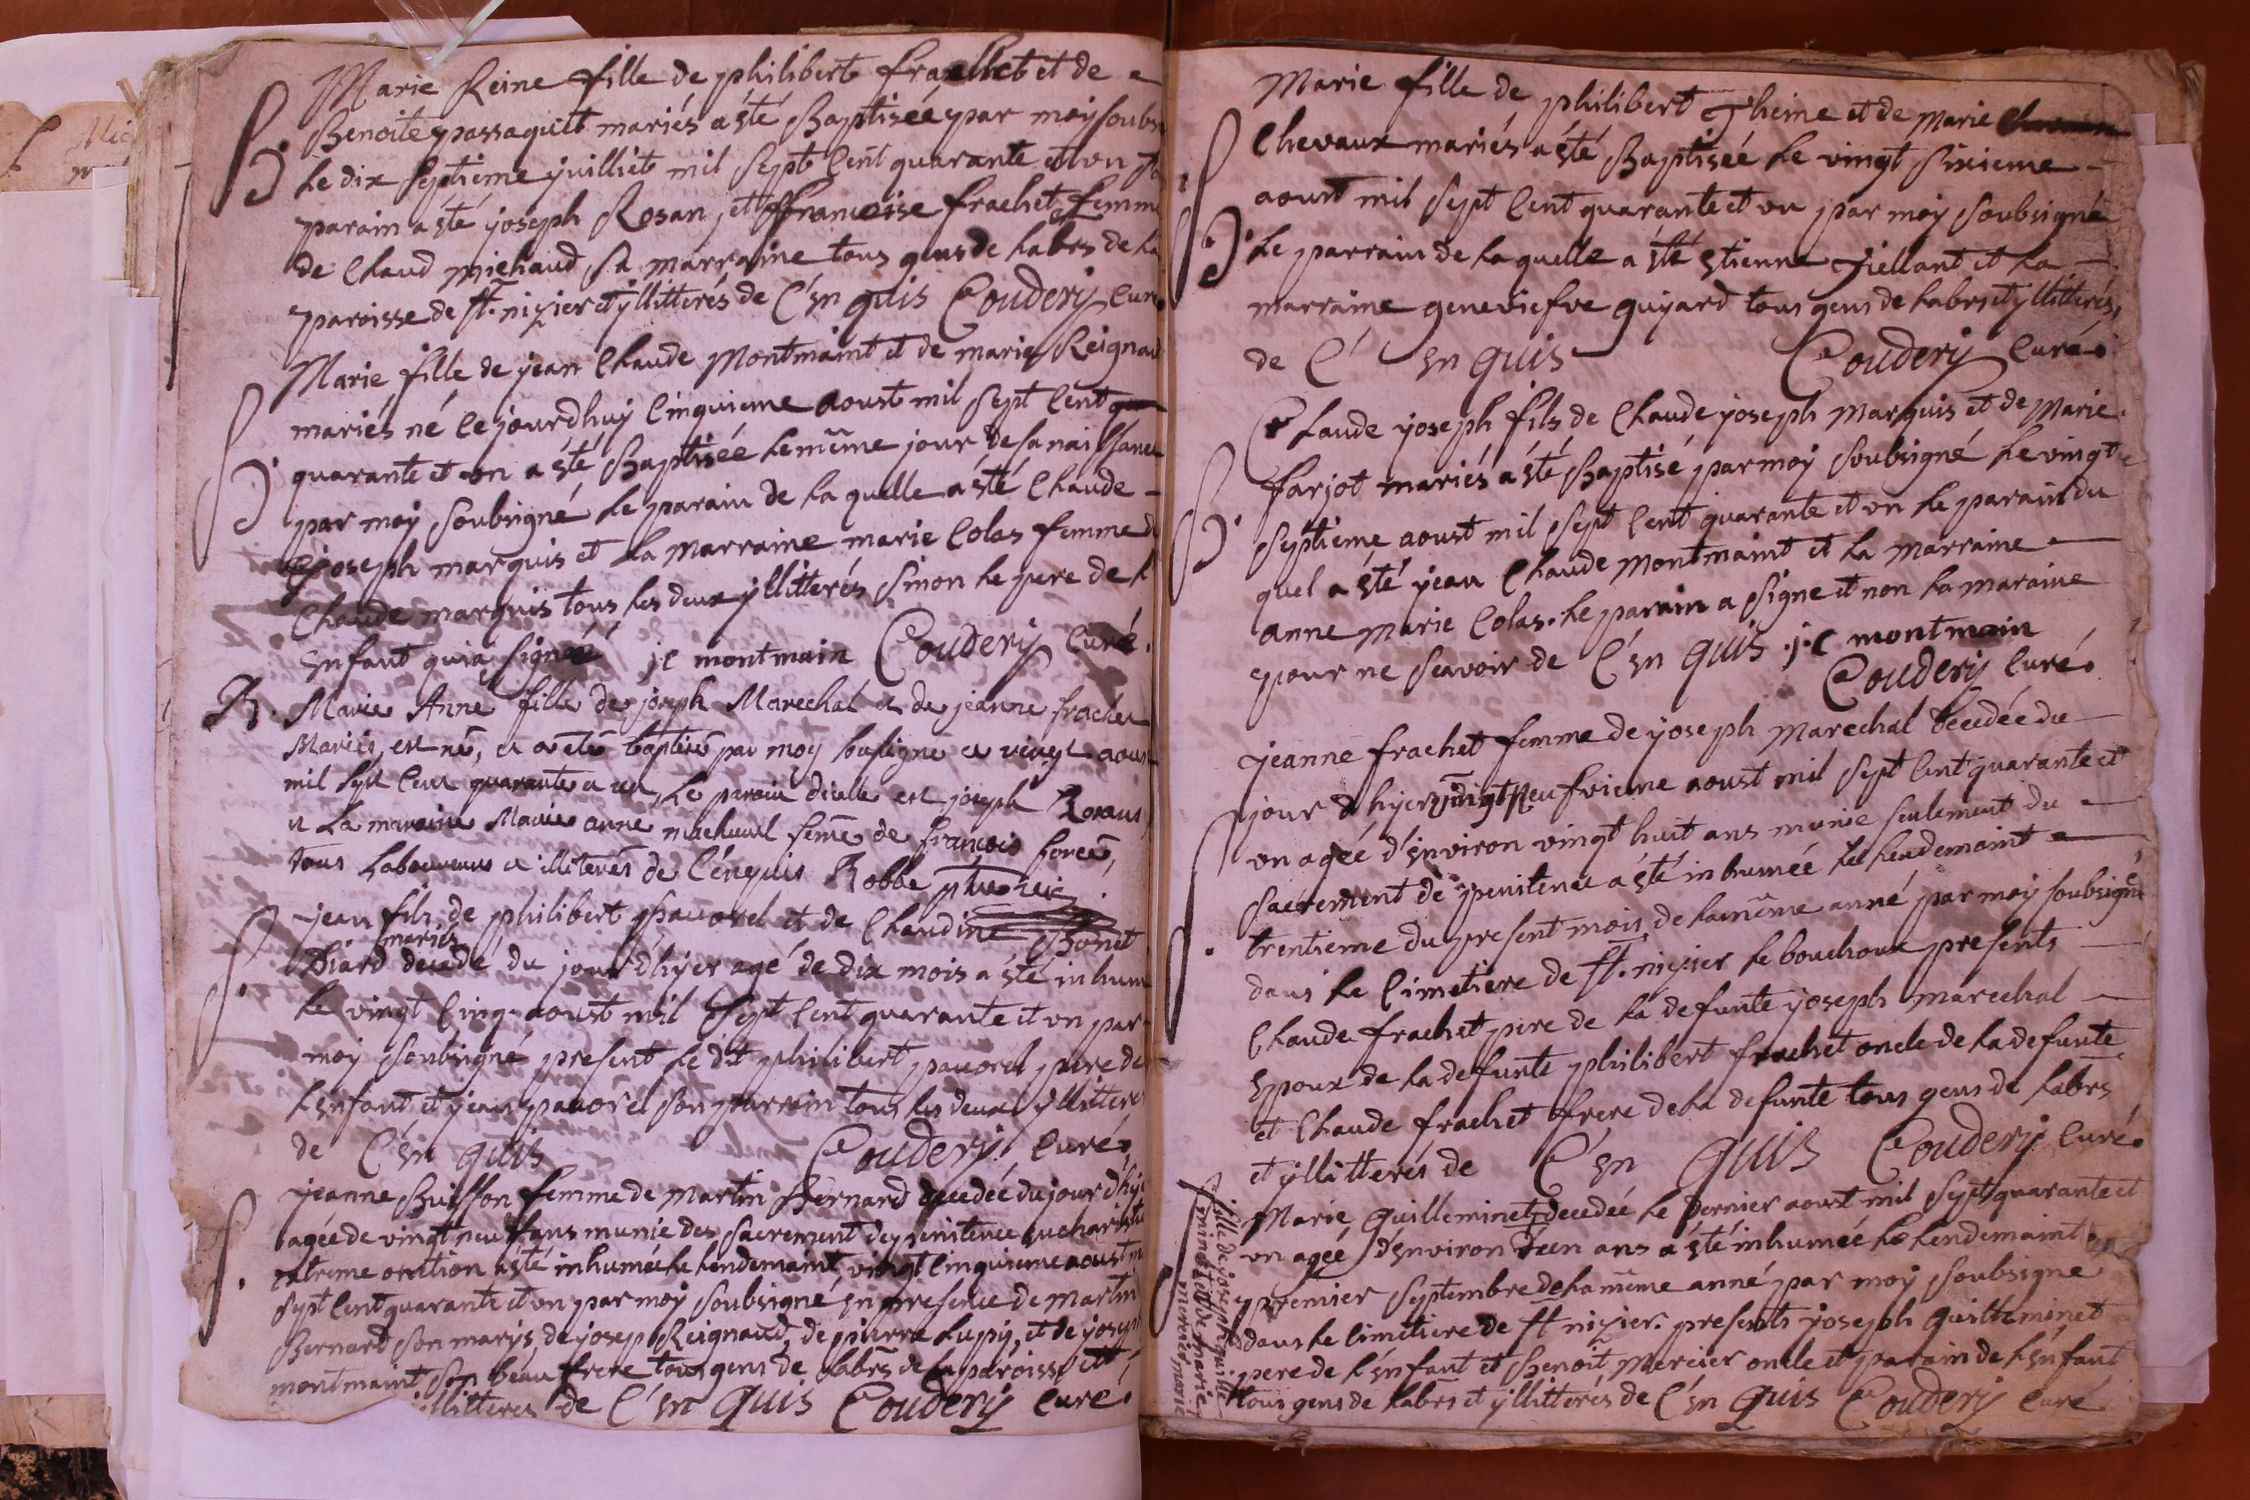 Marie Reine fille de philibert frachet et de
B. Benoite passaquit mariés a sté Baptiseé par moy soubs
le dix septieme juilliet mil sept cent quarante et un
parain a sté joseph Rosan et françoise frachet femme
de Claud michaud sa marraine tous gens de labrs de la
paroisse de st. nizier et yllitterés de C'en quis Coudery Curé
Marie fille de jean Claude Montmaint et de marie Reignau
mariés né le jourdhuy cinquieme aoust mil sept cent
B. quarante et on a sté Baptisée le même jour de sa naissance
par moy soubsigné le parain de la quelle a sté Claude
joseph marquis et la marraine marie Colas femme d
Claude marquis tous les deux yllitterés sinon le pere de l
enfant qui a signé jc montmain Coudery Curé.
B. Marie Anne fille de joseph Marechal et de jeanne frachet
Mariés, est né, et a été baptisée par moy soussigné ce vingt aoust
mil sept cent quarante et un, Le parain d'icelle est joseph Rosans
et La maraine Marie anne femê de françois
tous Laboureurs et illiterés de C'enquis Robbe
jean fils de philibert pauorel et de Claudine Bonet
mariés
Diard decedé du jour d'hyer agé de dix mois a sté inhum
S. le vingt cinq aoust mil sept cent quarante et un par
moy soubsigné present le dt philibert pauorel pere de
l'enfant et jean pauorel son parrain tous les deux yllitteré
de C'en quis Coudery Curé.
jeanne Buisson femme de martin Bernard decedée du jour d'hye
agée de vingt neuf ans munie des sacrement de penitence eucharistie
S. extreme onction a sté inhumée le lendemaint vingt cinquieme aoust m
sept cent quarante et on par moy soubsigné en presence de martin
Bernard son marys, de josep Reignaud, de pierre Lupy, et de joseph
montmaint son beau frere tous gens de labrs de la paroisse et
illitterés de C'en quis Coudery Curé.
Marie fille de philibert Theine et de Marie
Chevaux mariés a sté Baptiseé le vingt sixieme
aoust mil sept cent quarante et un par moy soubsigné
B. le parrain de la quelle a sté etienne Jiellant et la
marraine geneviefve guyard tous gens de labrs et yllitterés,
de C' en quis Coudery Curé.
Claude joseph fils de Claude joseph Marquis et de Marie
farjot mariés a sté Baptisé par moy soubsigné le vingt
B. septieme aoust mil sept cent quarante et on le parain du
quel a sté jean Claude montmaint et la marraine
anne Marie Colas. le parain a signe et non la maraine
pour ne scavoir de C'en quis j.c montmain
Coudery Curé.
jeanne frachet femme de joseph marechal decedée du
jour d'hyer vingt neufvieme aoust mil sept cent quarante et
un agée d'environ vingt huit ans munie seulement du
sacrement de penitence a sté inhumée le lendemaint
S. trentieme du present mois de la même anné par moy soubsigné
dans le Cimetiere de st. nizier le bouchoux presents
Claude frachet pere de la defunte joseph marechal
epoux de la defunte philibert frachet oncle de la defunte
et Claude frachet frere de la defunte tous gens de labrs
et yllitterés de C'en quis Coudery Curé.
Marie Guilleminet, decedée le dernier aoust mil sept quarante et
un ageé d'environ deen ans a sté inhumée le lendemaint
premier septembre de la même anné par moy soubsigne
dans le cimetiere de st nizier. presents joseph Guilleminet
pere de l'enfant et Benoit Mercier oncle et parain de l'enfant
tous gens de labrs et yllitterés de C'en quis Coudery Curé
fille de joseph guille
minet et de marie
mercier